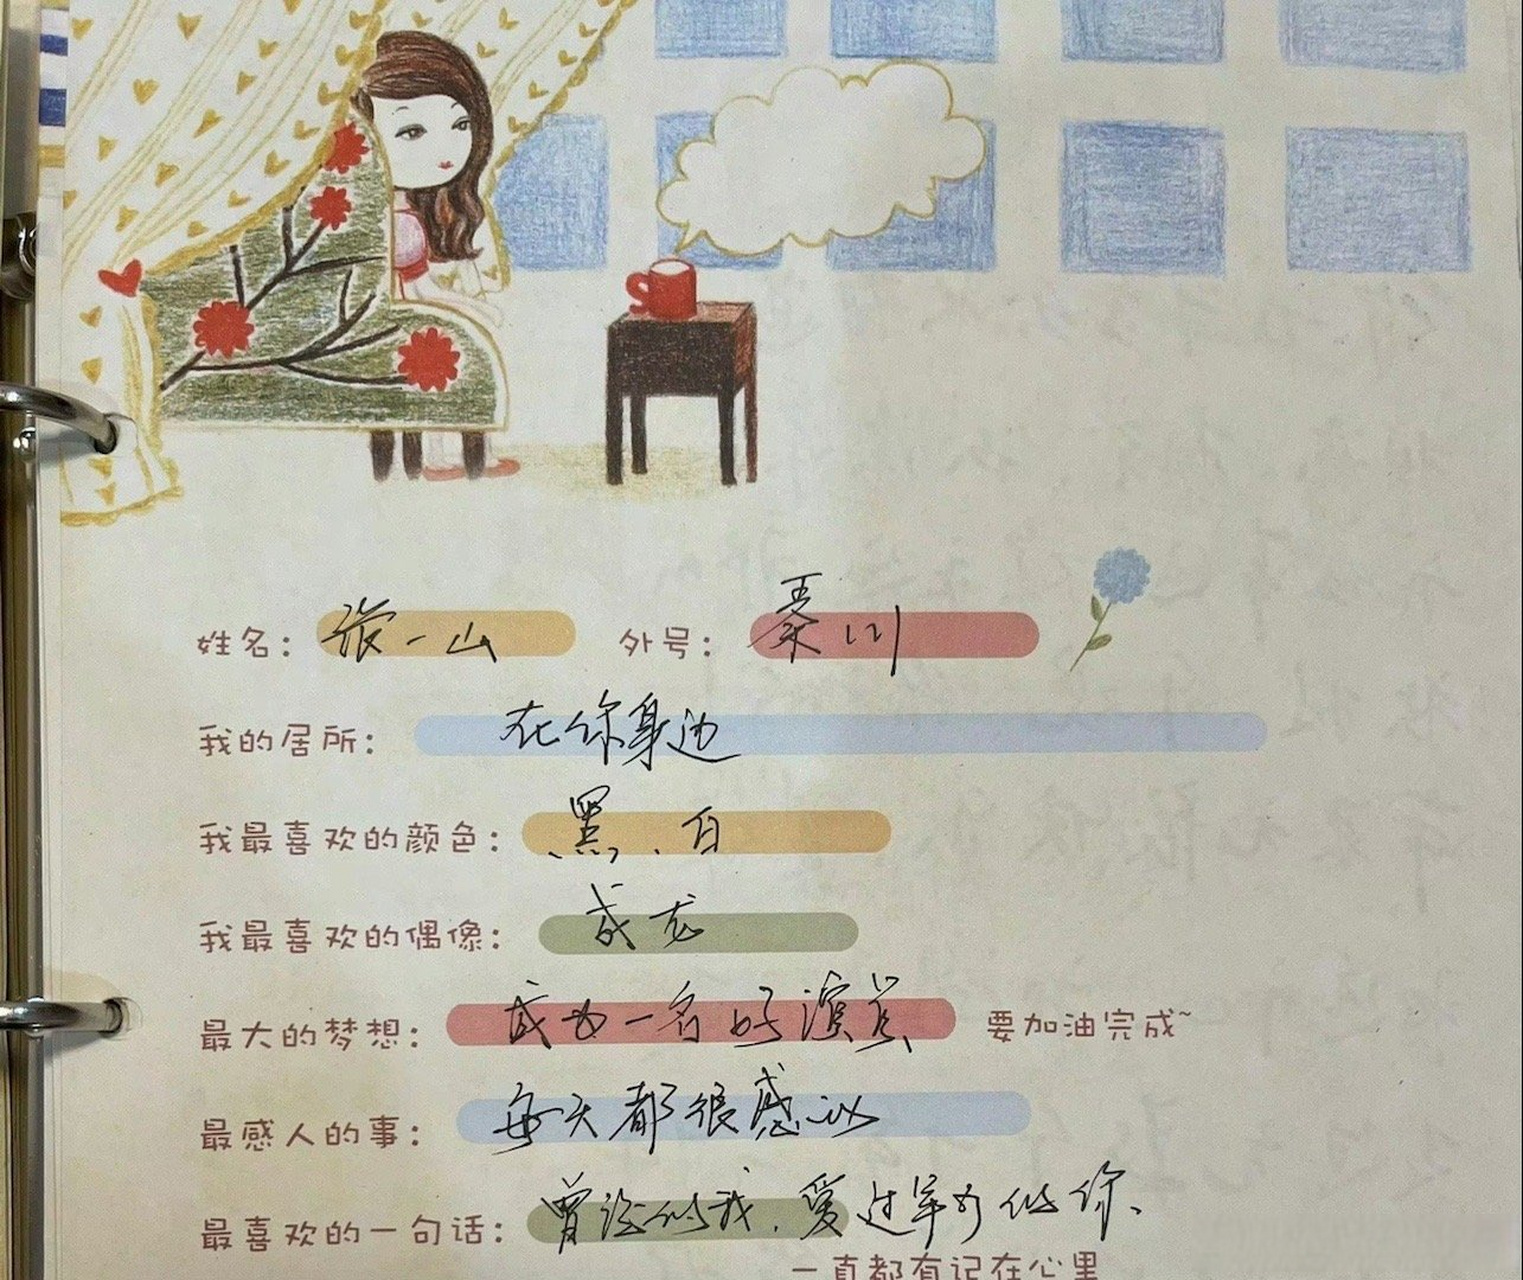 姓名： 张一山 外号： 秦川
我的居所： 在你身边
我最喜欢的颜色： 黑、白
我最喜欢的偶像： 成龙
最大的梦想： 成为一名好演员 要加油完成~
最感人的事： 每天都很感
最喜欢的一句话： 曾经的我，爱过年少 你、
一直都有记在心里